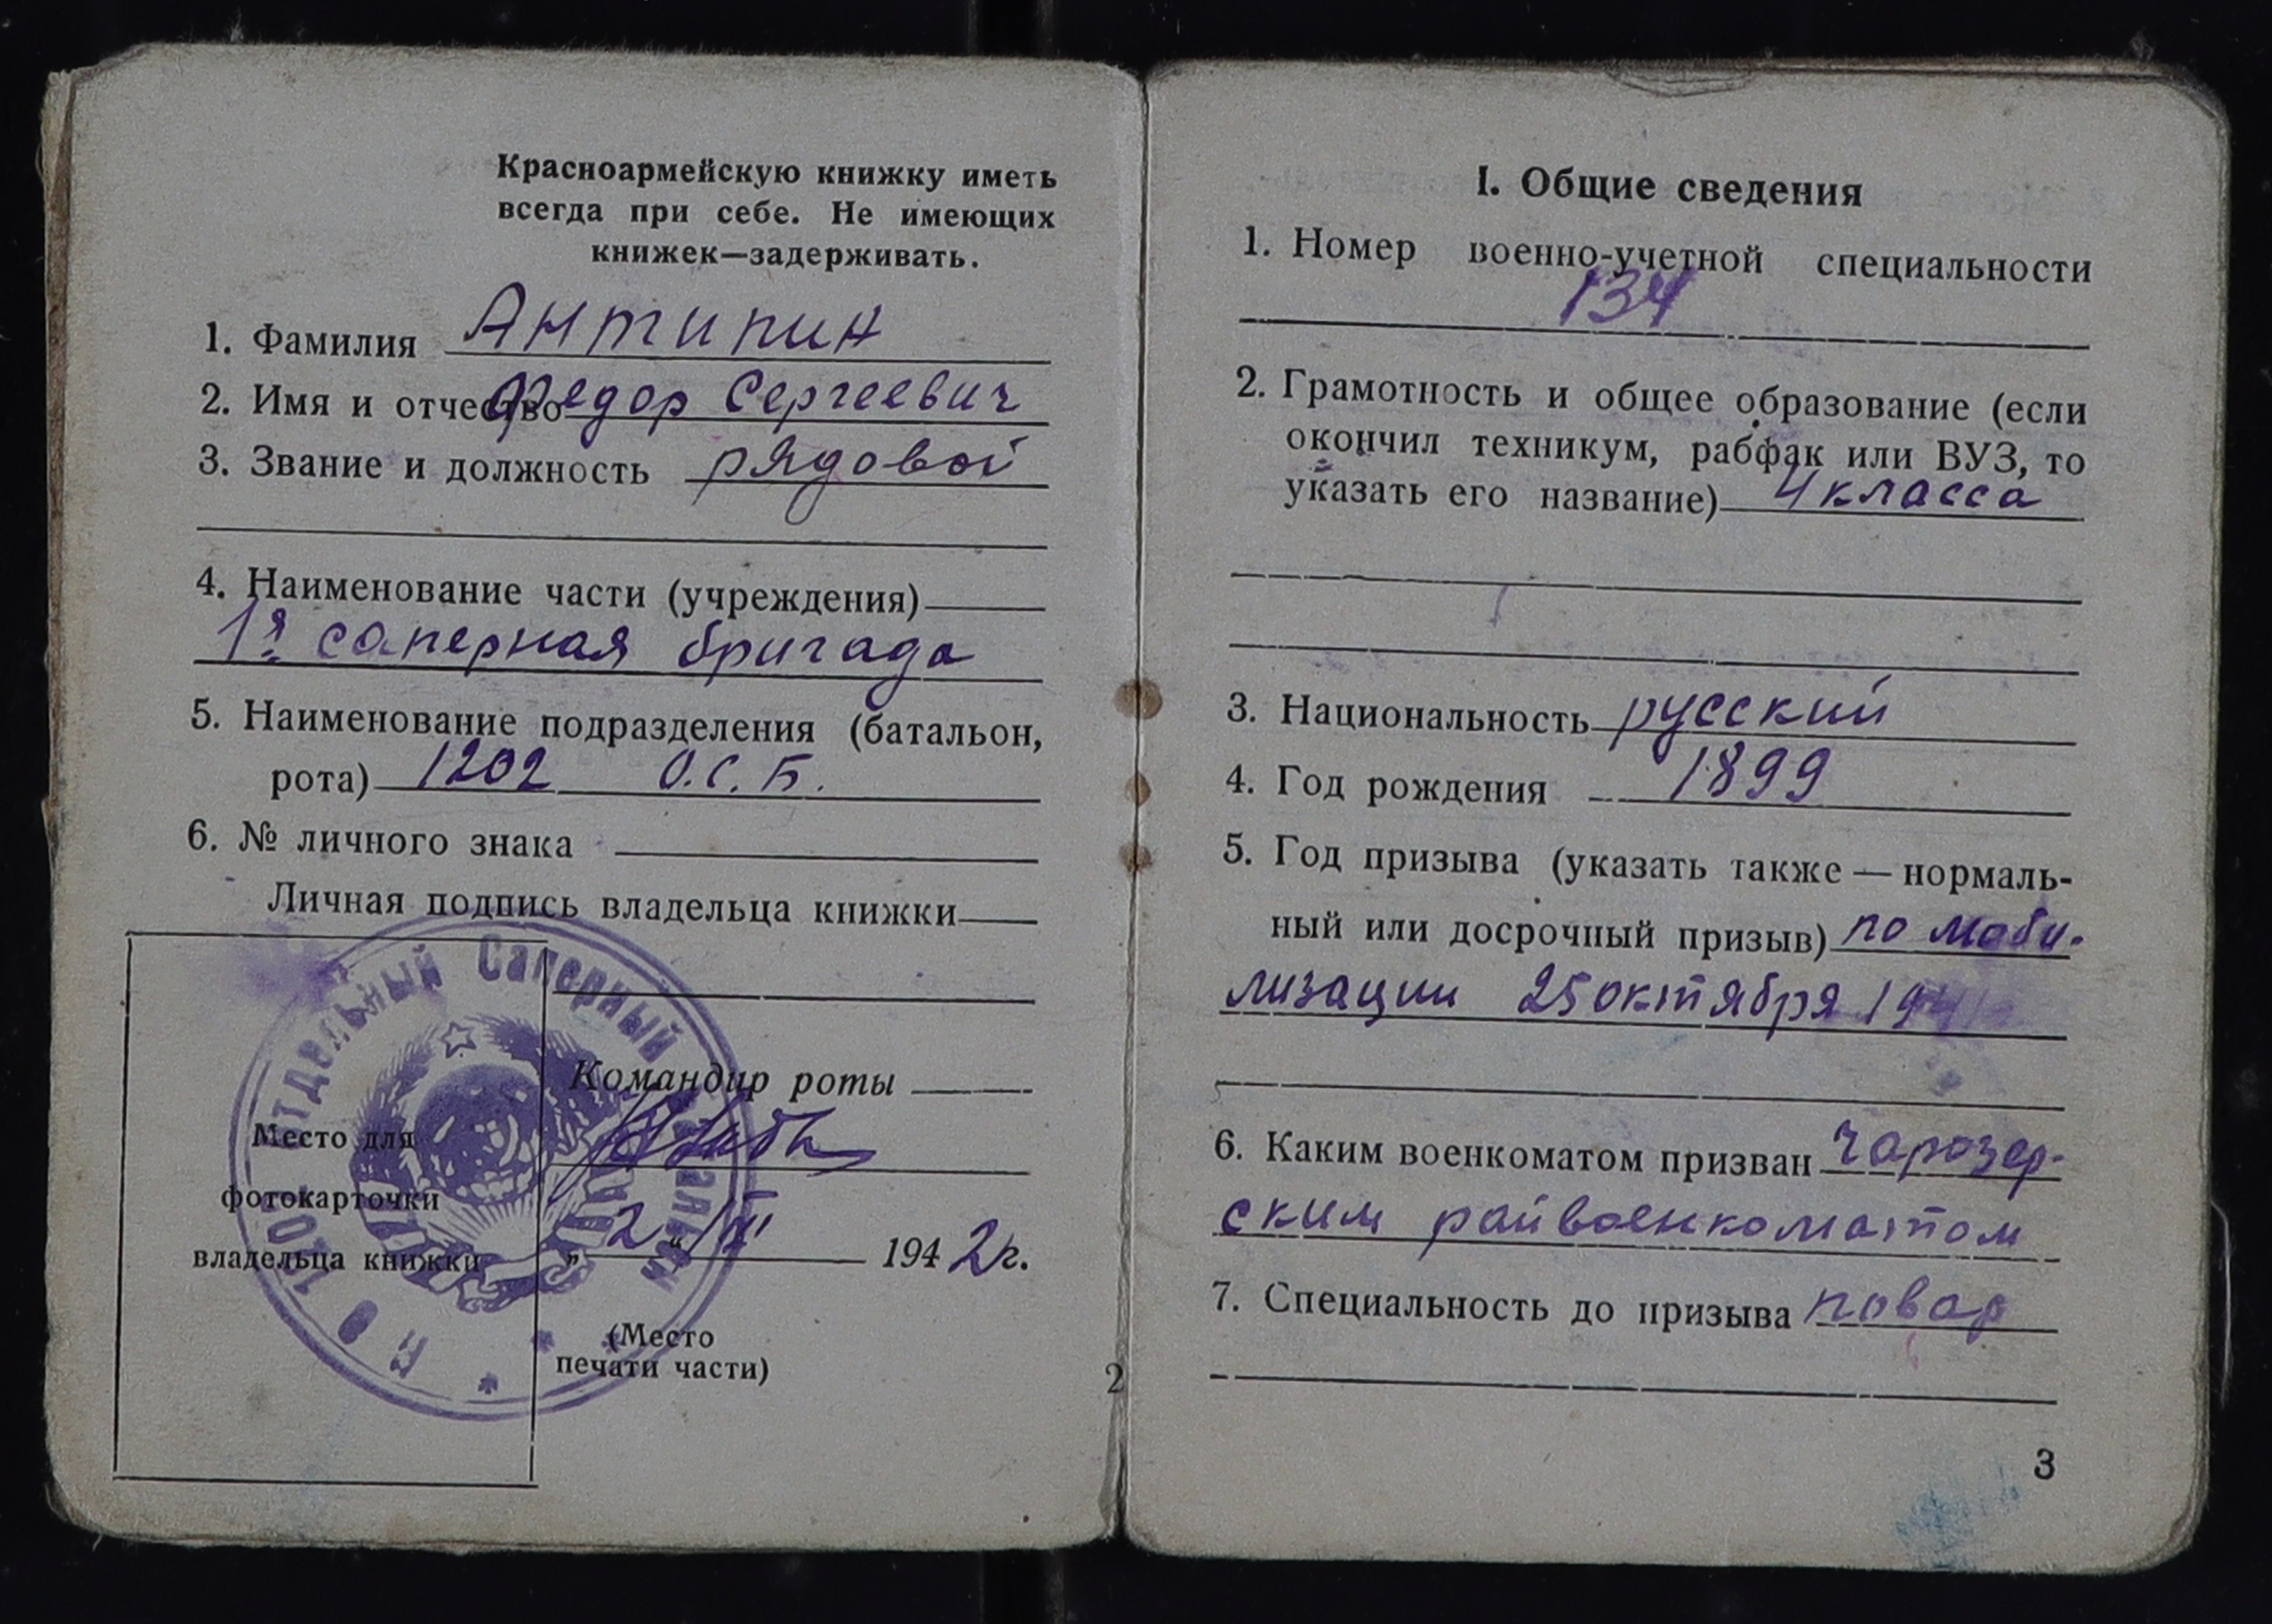 Красноармейскую книжку иметь
всегда при себе. Не имеющих
книжек—задерживать.
1. Фамилия Антипин
2. Имя и отчество Федор Сергеевич
3. Звание и должность рядовой
4. Наименование части (учреждения)
1я саперная бригада
5. Наименование подразделения (батальон,
рота) 1202 О.С.Б.
6. № личного знака
Личная подпись владельца книжки
Отдельный Саперный
НКО
Командир роты
Место для
фотокарточки
владельца книжки
„2“ 1942г.
(Место
печати части)
2
I. Общие сведения
1. Номер военно-учетной специальности
134
2. Грамотность и общее образование (если
окончил техникум, рабфак или ВУЗ, то
указать его название) 4 класса
3. Национальность русский
4. Год рождения 1899
5. Год призыва (указать также — нормаль-
ный или досрочный призыв) по моби-
лизации 25 октября
6. Каким военкоматом призван Чарозер-
ским райвоенкоматом
7. Специальность до призыва повар
3